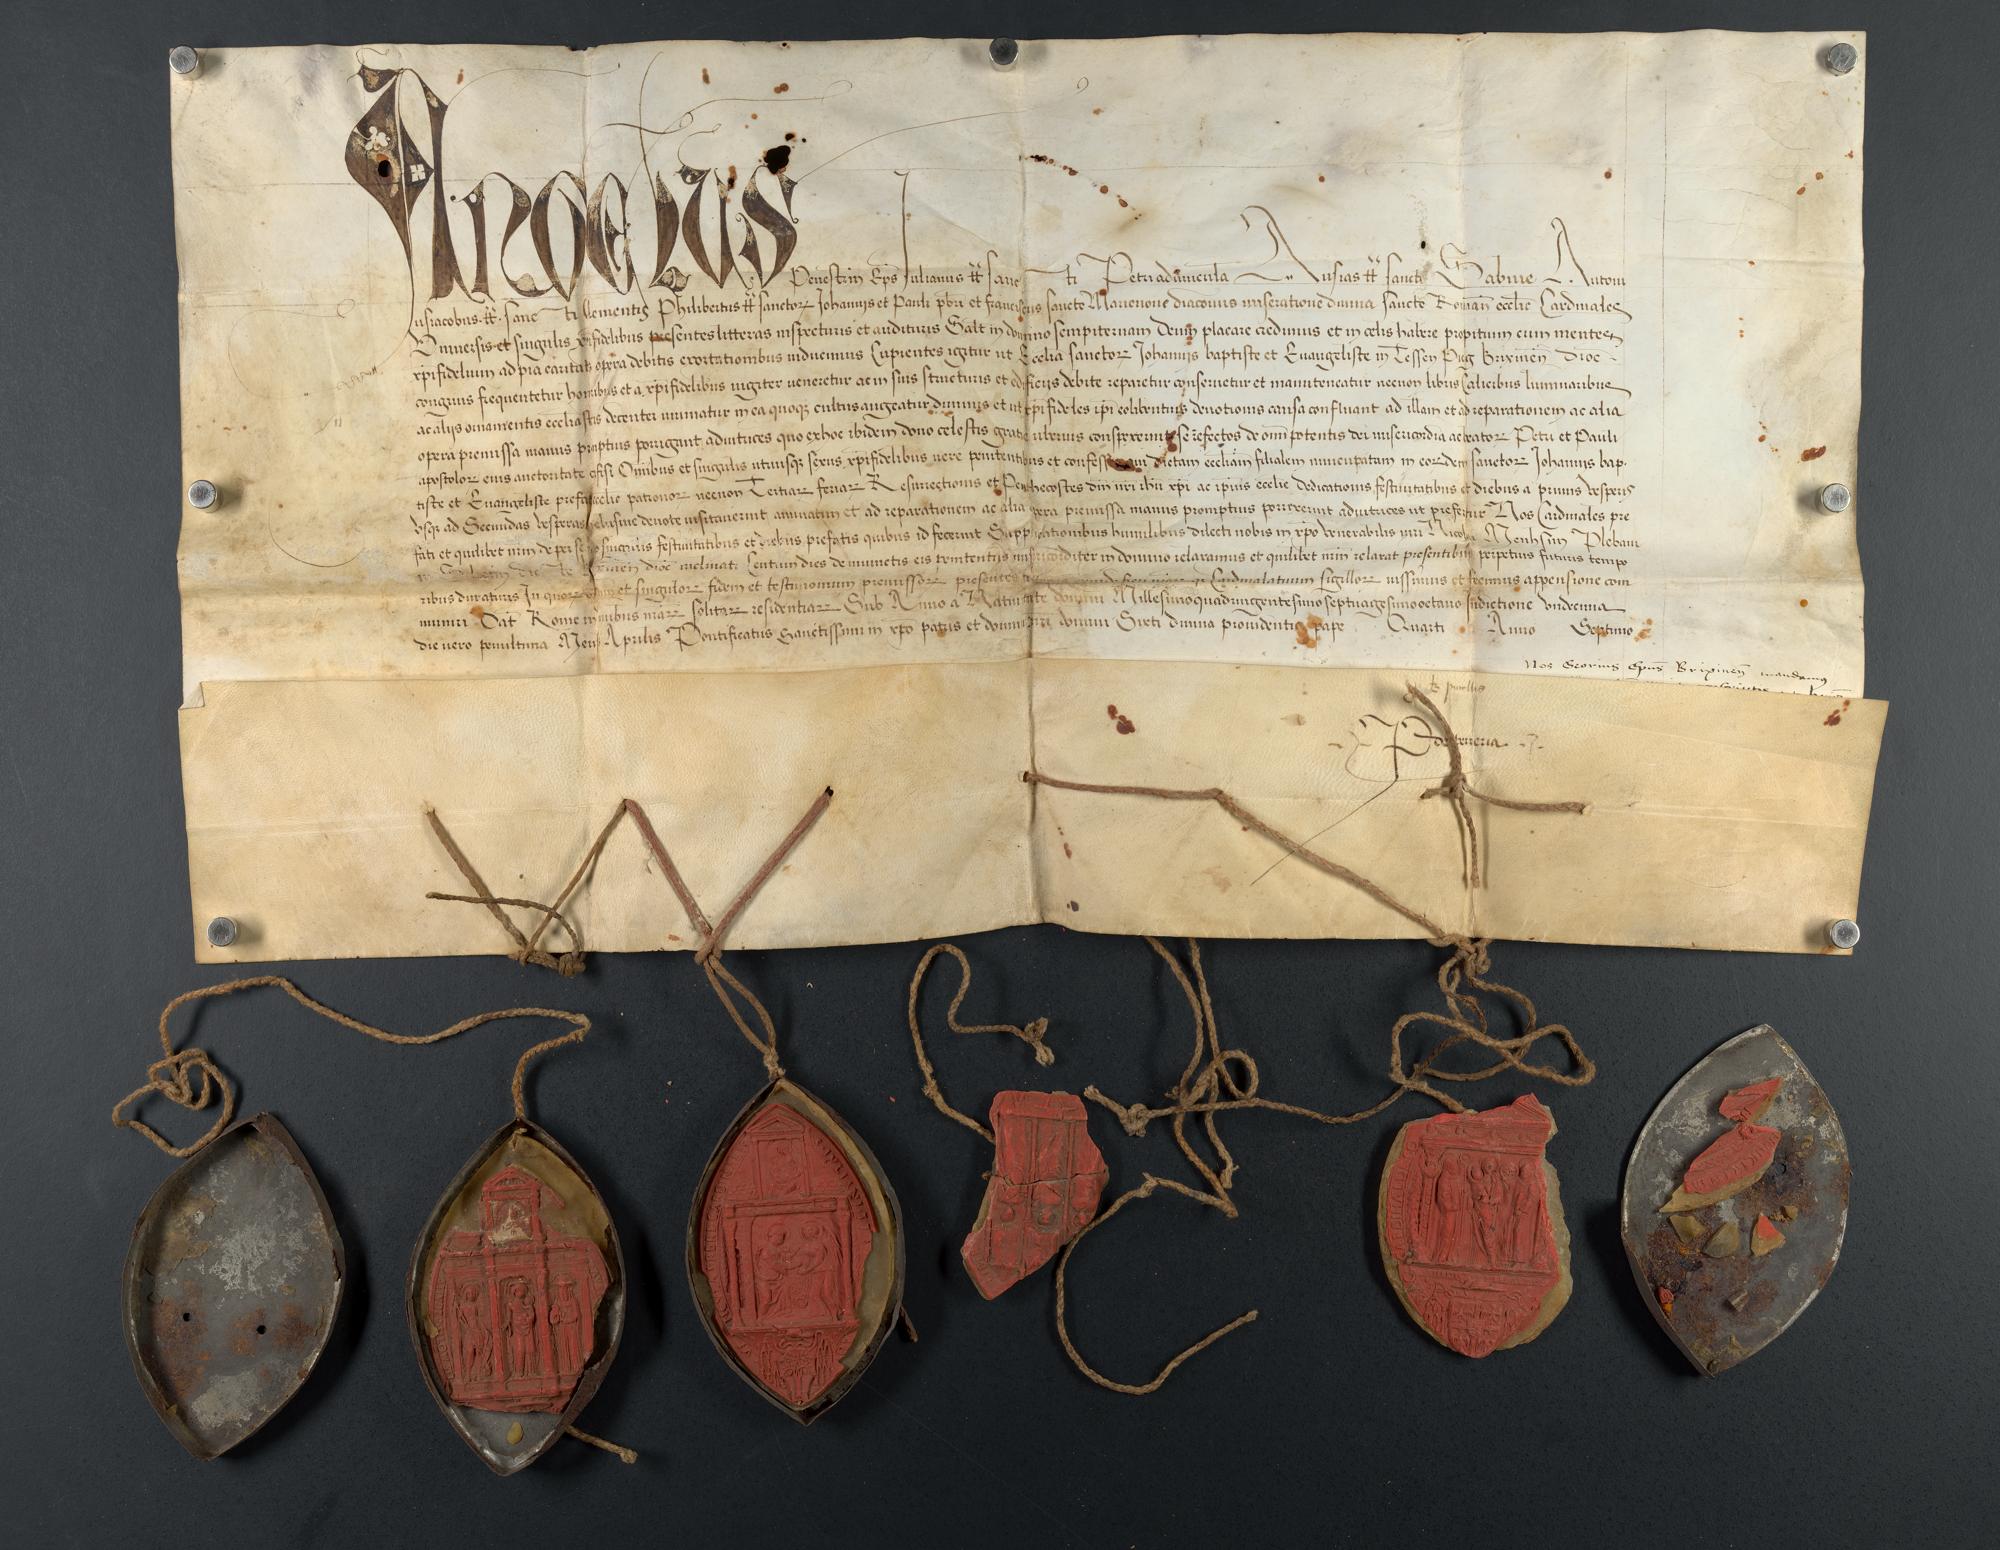 Angelus
Penestrin Eps Iulianus tt sancti Petri ad vincula Ausias tt sancte Sabine Antoni
usiacobus tt sancti Clementis Philibertus tt sanctor Johannis et Pauli pbri et franciscus sancte Marienove diaconus miseratione divina sancte Roman ecclie Cardinales
Universis et singulis xpifidelibus presentes litteras inspecturis et audituris Salt in domino sempiternam Deum placare credimus et in celis habere propitium cum mentes
xpifidelium ad pia caritatis opera debitis exortationibus inducimus Cupientes igitur ut Ecclia sanctor Johannis baptiste et Evangeliste in Tessen Brixinen dioc
congruis frequentetur honoribus et a xpifidelibus iugiter veneretur ac in suis structuris et edificiis debite reparetur conservetur et manuteneatur necnon libris Calicibus luminaribus
ac aliis ornamentis ecclesiasticis decenter muniatur in ea quoque cultus augeatur divinus et ut xpifideles ipi eo libentius devotionis causa confluant ad illam et ad reparationem ac alia
opera premissa manus promptius porrigant adiutrices quo ex hoc ibidem dono celestis gratie uberius conspexerint se refectos de omipotentis dei misericordia ac beator Petri et Pauli
apostolor eius auctoritate cfisi Omibus et singulis utriusque sexus xpifidelibus vere penitentibus et confessis qui dictam eccliam filialem nuncupatam in eordem sanctor Johannis bap
tiste et Evangeliste prefate ecclie patronor necnon Tertiar feriar Resurrectionis et Penthecostes dni nri ihu xpi ac ipius ecclie dedicationis festivitatibus et diebus a primis vesperis
usque ad Secundas vesperas inclusive devote visitaverint annuatim et ad reparationem ac alia opera premissa manus promptius porrexerint adiutrices ut prefertur Nos Cardinales pre
fati et quilibet nrm de per se pro singulis festivitatibus et diebus prefatis quibus id fecerint Supplicationibus humilibus dilecti nobis in xpo venerabilis viri Nicolai Plebani
dioc inclinati Centum dies de iniunctis eis penitentiis misericorditer in domino relaxamus et quilibet nrm relaxat presentibus perpetuis futuris tempo
ribus duraturis In quor omium et singulor fidem et testimonium premissor presentes Cardinalatuum sigillor iussimus et fecimus appensione com
muniri Dat Rome in domibus nrar solitar residentiar Sub Anno a Nativitate domini Millesimoquadringentesimoseptuagesimooctavo Indictione Undecima
die vero penultima Mensis Aprilis Pontificatus Sanctissimi in xpo patris et domini nri domini Sixti divina providentia pape Quarti Anno Septimo
Nos Georius Epus Brixinen mandamus